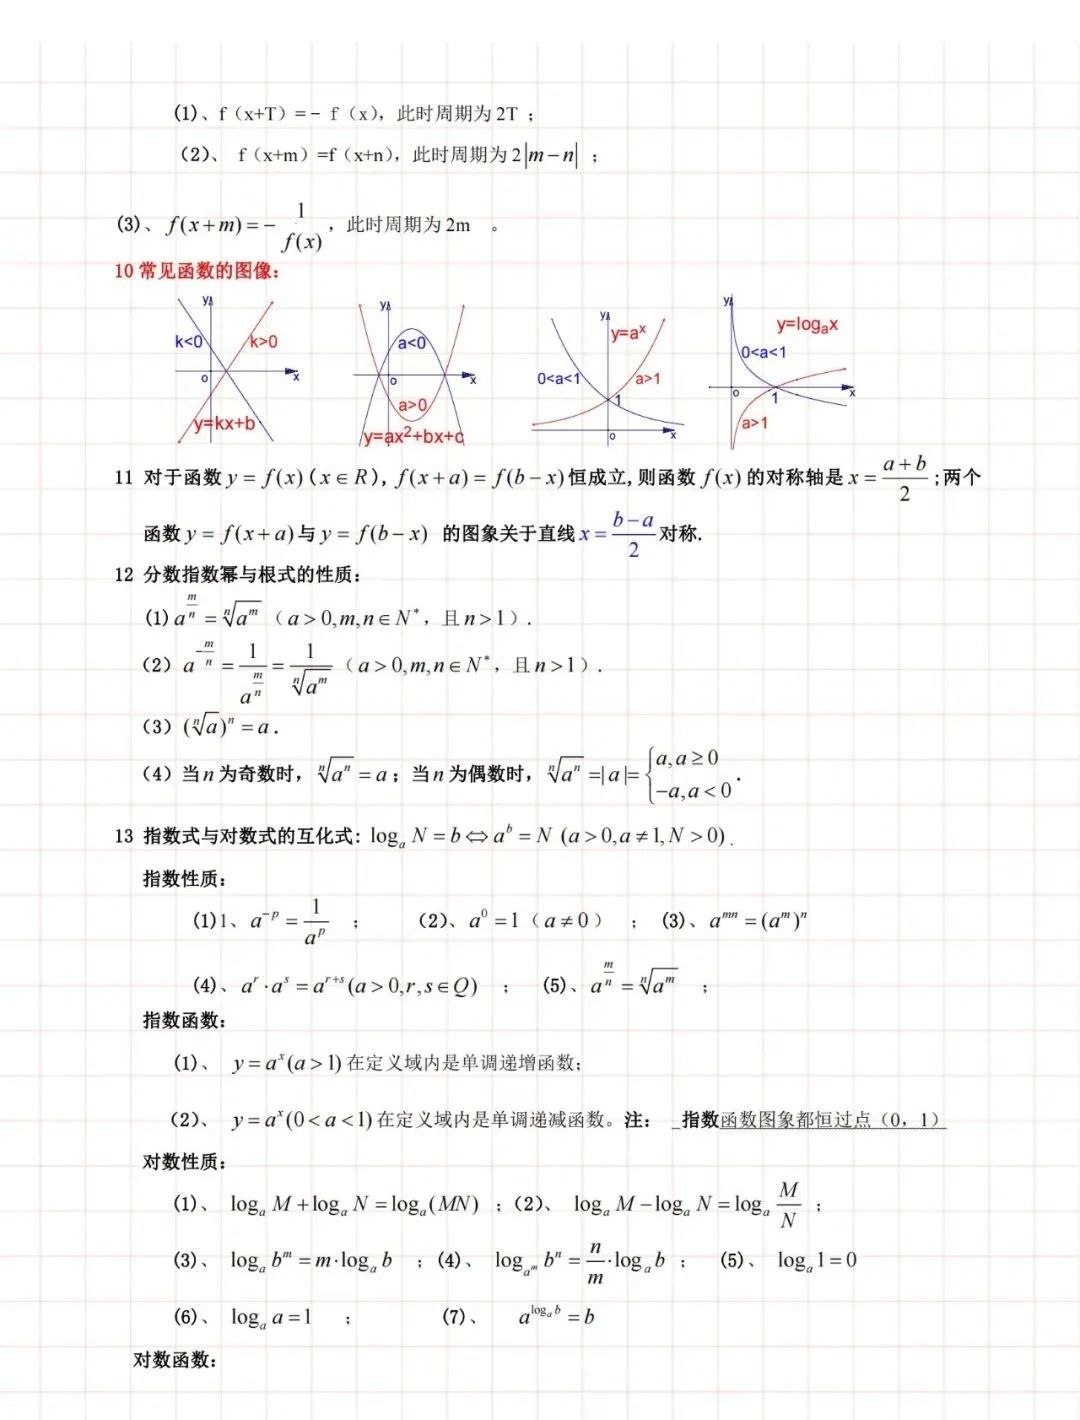 (1)、f（x+T）=- f（x），此时周期为 2T ；
（2）、 f（x+m）=f（x+n），此时周期为 2|m－n| ；
(3)、f(x+m)=－1/f(x)，此时周期为 2m 。
10 常见函数的图像：
y y y y
k<0 k>0 a<0 y=aˣ y=logₐx
0<a<1
o x o x 0<a<1 a>1 o 1 x
a>0 1
y=kx+b y=ax²+bx+c o x a>1
11 对于函数 y = f(x)(x∈R), f(x+a)= f(b－x)恒成立,则函数 f(x)的对称轴是 x = (a+b)/2 ;两个
函数 y = f(x+a)与 y = f(b－x) 的图象关于直线 x = (b－a)/2 对称.
12 分数指数幂与根式的性质：
(1) a^(m/n) = ⁿ√(a^m)（a>0,m,n∈N*，且 n>1）.
（2）a^(-m/n) = 1/a^(m/n) = 1/ⁿ√(a^m)（a>0,m,n∈N*，且 n>1）.
（3）(ⁿ√a)ⁿ = a .
（4）当 n 为奇数时，ⁿ√(aⁿ) = a；当 n 为偶数时，ⁿ√(aⁿ) =|a|= {a,a≥0 －a,a<0 .
13 指数式与对数式的互化式: logₐ N = b ⇔ a^b = N (a>0,a≠1,N>0) .
指数性质：
(1)1、a^(-p) = 1/a^p ； （2）、a⁰ =1（a≠0） ； (3)、a^(mn) =(a^m)^n
(4)、a^r ·a^s = a^(r+s)(a>0,r,s∈Q) ； (5)、a^(m/n) = ⁿ√(a^m) ；
指数函数：
(1)、 y=a^x(a>1)在定义域内是单调递增函数；
（2）、 y=a^x(0<a<1)在定义域内是单调递减函数。注： 指数函数图象都恒过点（0，1）
对数性质：
(1)、 logₐ M+logₐ N=logₐ(MN) ；（2）、 logₐ M－logₐ N=logₐ M/N ；
(3)、 logₐ b^m =m·logₐ b ；(4)、 log_(a^m) b^n = n/m·logₐ b ； (5)、 logₐ 1=0
(6)、 logₐ a=1 ； (7)、 a^(logₐ b) =b
对数函数：